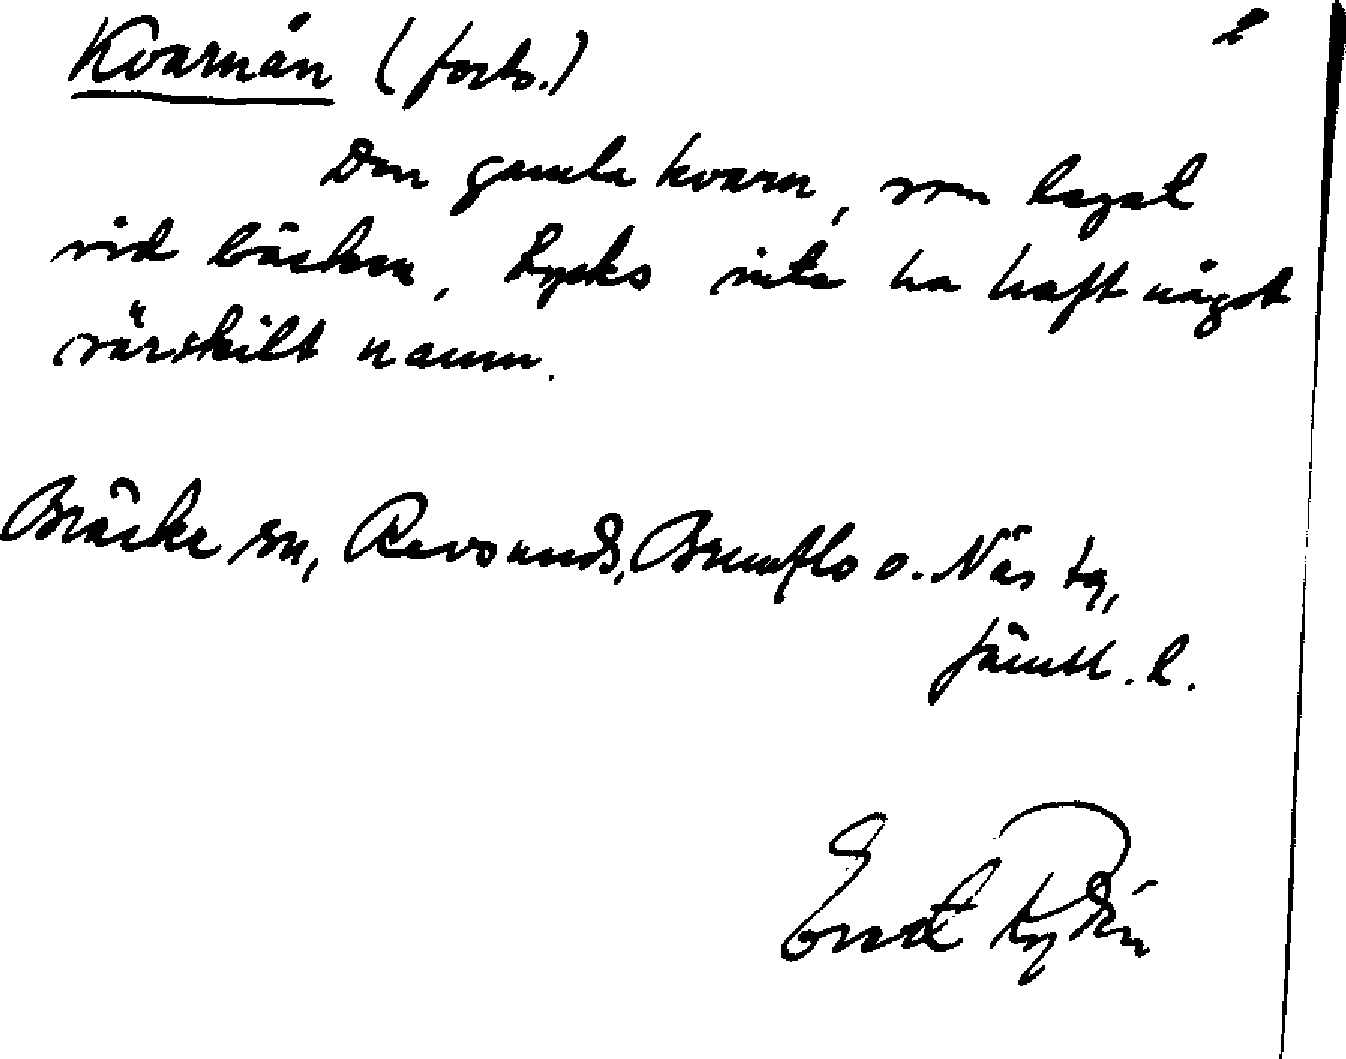 Kvarnån (forts.) 2
Den gamla kvarn, som legat
vid bäcken, tycks inte ha haft något
särskilt namn.
Bräcke sn, Revsunds, Brunflo o. Näs tg,
Jämtl. l.
Ernst Rydén